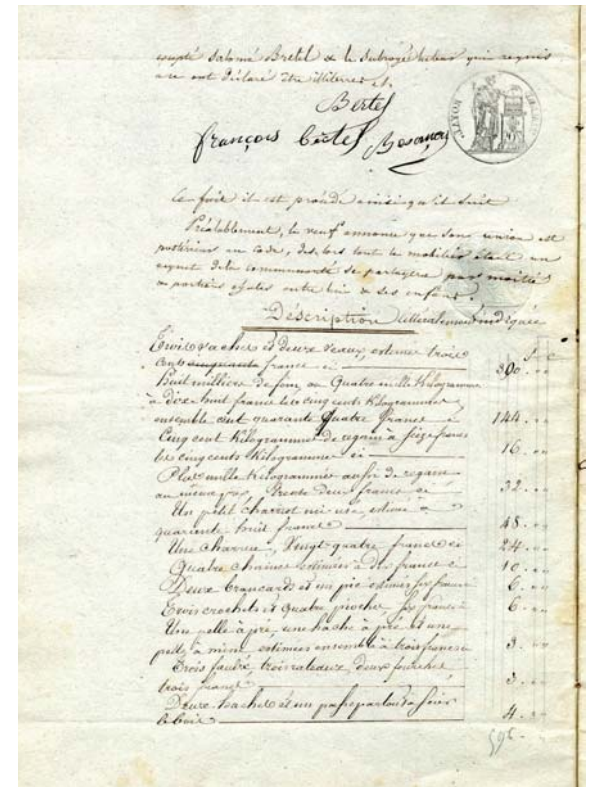 compté Salomé Bretel & le subrogé tuteur qui requis
ont déclaré être illiterés
Bertel
françois bertel Besançon
Ce fait il est procédé ainsi qu'il suit
Préalablement, le veuf annonce que son union est
postérieure au Code, dès lors tout le mobilier étant un
acquet de la communauté se partagera par moitié
ou portions égales entre lui & ses enfans.
Déscription littéralement indiquée
f. c
Trois vaches et deux veaux estimés trois
cents cinquante francs ci 300. ""
huit milliers de foin ou Quatre mille Kilogrammes
à dix huit francs les cinq cents Kilogrammes
ensemble cent quarante Quatre francs ci 144. ""
Cinq cent Kilogrammes de regain à seize francs
les cinq cents Kilogrammes ci 16. ""
Plus mille Kilogrammes aussi de regain
au même prix, trente deux francs ci 32. ""
Un petit charriot mi usé, estimé à
quarante huit francs 48. ""
Une charrue, Vingt-quatre francs ci 24. ""
Quatre chaines estimées à dix francs ci 10. ""
Deux brancards et un pic estimés six francs 6. ""
Trois crochets et quatre pioches, six francs 6. ""
Une pelle à pré, une hache à pré et une
pelle à mine, estimées ensemble à trois francs 3. ""
Trois faulx, trois rateaux, deux fourches
trois francs 3. ""
Deux haches et un passepartout à scier
le bois 4. ""
596.